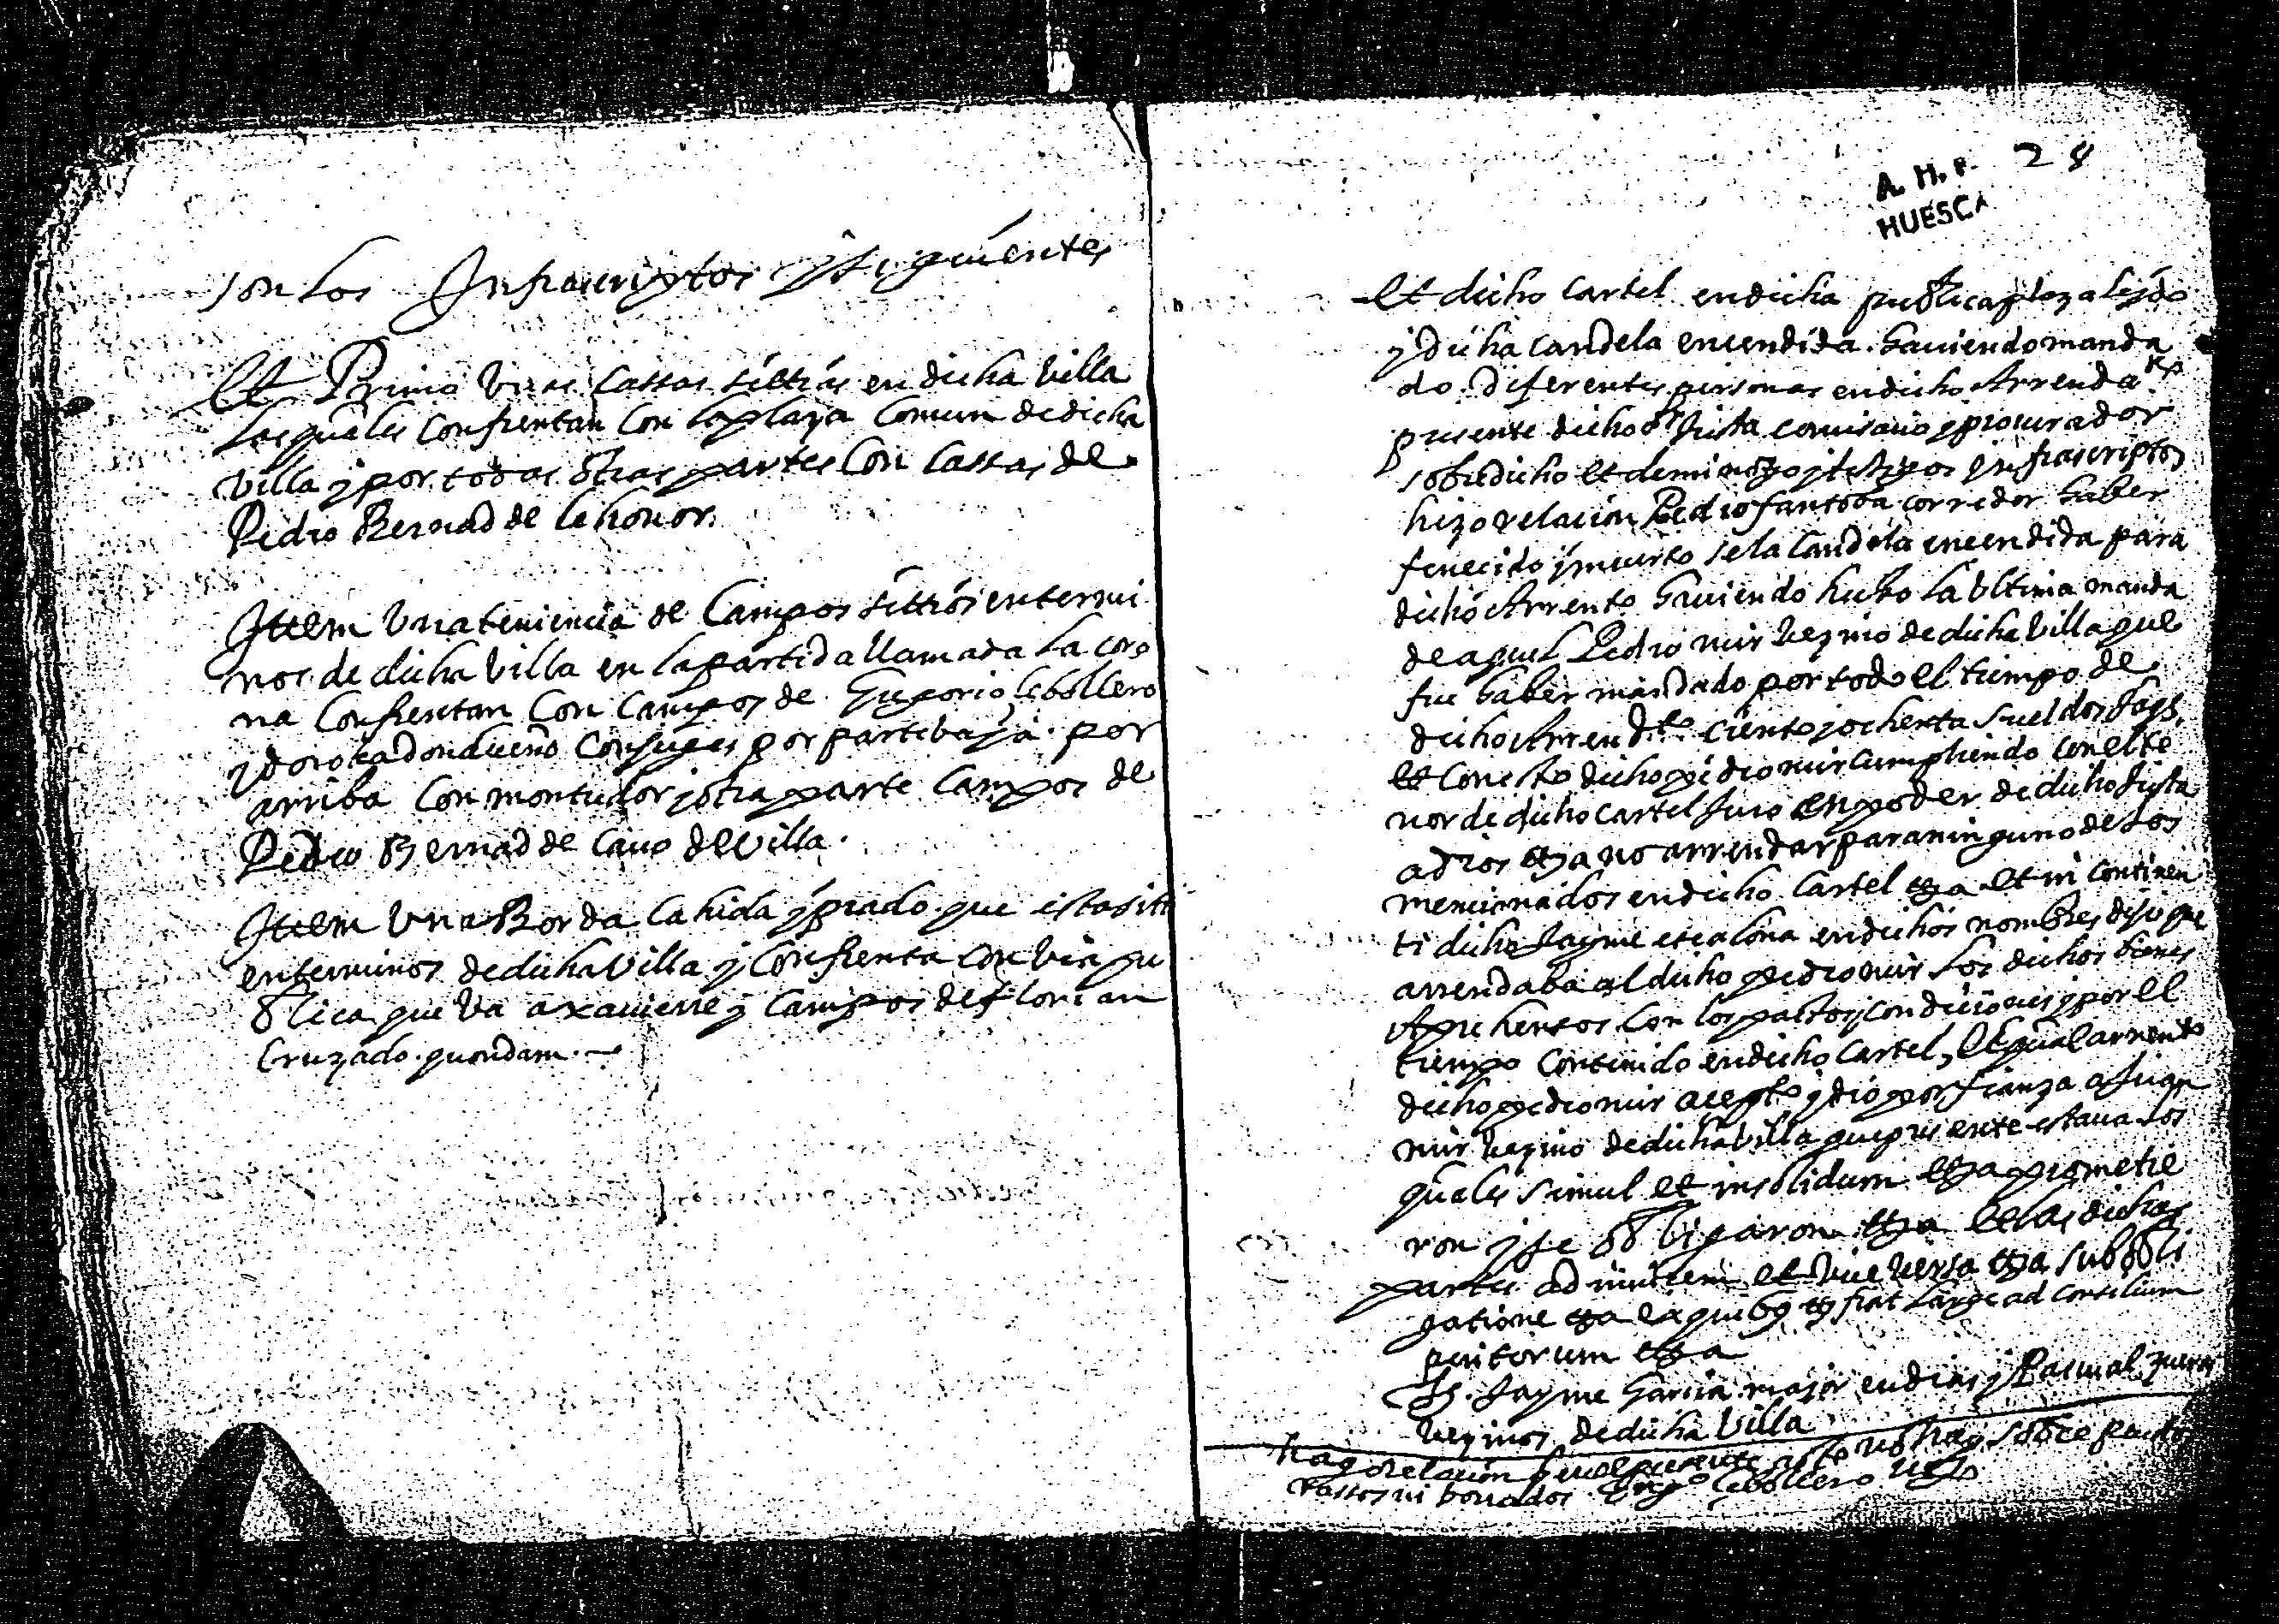 son los Infrascriptos y siguientes
Et Primo Unas Cassas sittias en dicha Villa
las quales Confrentan Con la plaza Comun de dicha
Villa y por todas otras partes Con Cassas de
Pedro Bernad de
Ittem Una teniencia de Campos sittios en termi
nos de dicha Villa en la partida llamada la coro
na Confrentan Con Campos de Gregorio Cebollero
conjuges por parte baja por
arriba Con y otra parte Campos de
Pedro Bernad de Cauo de Villa.
Ittem Una Borda Cahida y prado que esta siti
en terminos de dicha Villa y Confrenta Con Via pu
blica que Va a xauierre y Campos de Florian
Cruzado quondam.
A. H. P. 28
HUESCA
Et dicho Cartel en dicha publica plaza leydo
y dicha Candela encendida hauiendo manda
do diferentes personas en dicho Arrenda.to
presente dicho Justa comisario y procurador
sobredicho et de mi no.to y testigos Infrascriptos
hizo relacion Pedro fantoba corredor haber
fenecido y muerto se la Candela encendida para
dicho Arrento hauiendo hecho la Ultima manda
de aquel Pedro mir Vezino de dicha Villa que
fue haber mandado por todo el tiempo de
dicho Arrend.to ciento y ochenta sueldos Jaqs.
et Con esto dicho pedro mir cumpliendo con el te
nor de dicho Cartel Juro en poder de dicho Justa
a dios etza no arrendar para ninguno de los
mencionados en dicho Cartel etza et in continen
ti dicho Jayme escalona en dichos nombres dijo que
arrendaba al dicho pedro mir los dichos bienes
Aprehensos Con los pactos y condiciones y por el
tiempo Contenido en dicho Cartel, el qual arrento
dicho pedro mir acepto y dio por fianza a Juan
mir Vezino de dicha Villa que presente estaua los
quales simul et insolidum etza prometie
ron y se obligaron etza et las dichas
partes ad inuicem et vice versa etza sub obli
gatione etza ex quibus etz fiat large ad Consilium
peritorum etza
Ts. Jayme Garcia major en dias y Pascual
Vezinos de dicha Villa
hago relacion que el presente acto no hay sobrepuesto
rassos ni borrados Greg.o Cebollero no.to